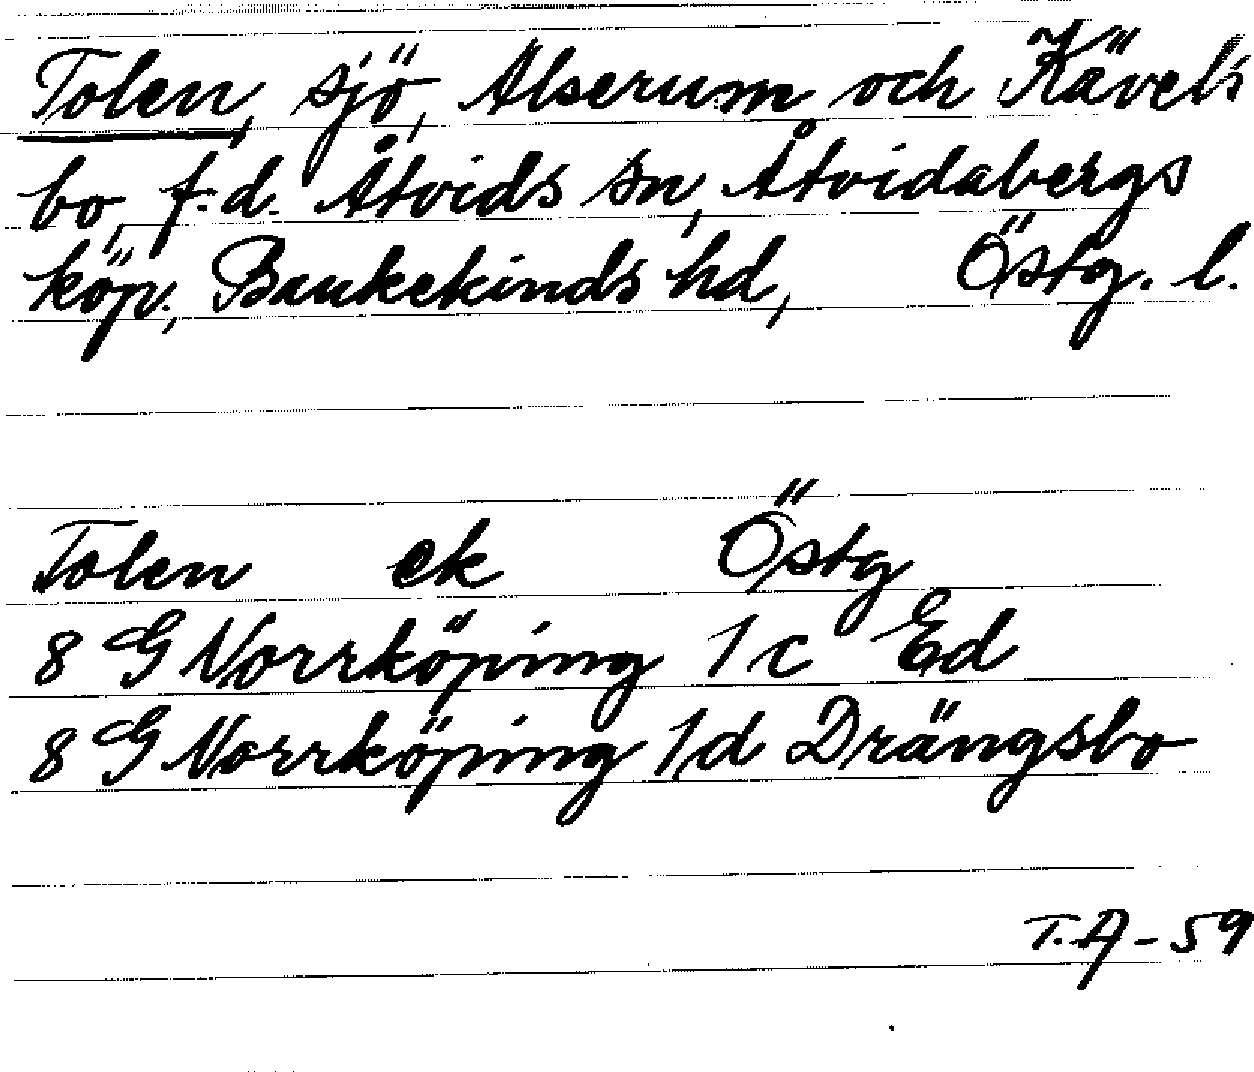 Tolen, sjö, Alserum och Kävels
bo, f.d. Åtvids sn, Åtvidabergs
köp., Bankekinds hd, Östg. l.
Tolen ek Östg
8 G Norrköping 1 c Ed
8 G Norrköping 1 d Drängsbo
T.A-59